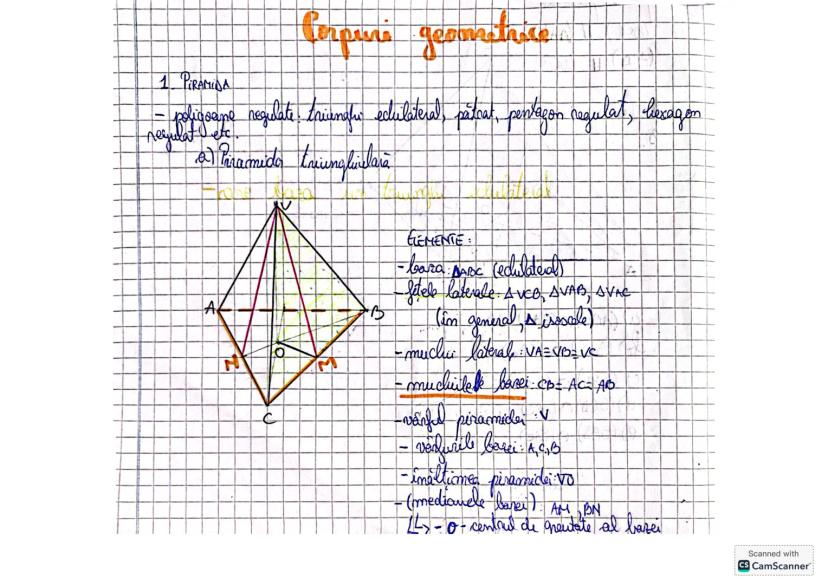 Corpuri geometrice
1. PIRAMIDA
- poligoane regulate: triunghi echilateral, pătrat, pentagon regulat, hexagon
regulat etc.
a) Piramida triunghiulară
- are baza un triunghi echilateral
V
A
B
N
O
M
C
ELEMENTE:
- baza: ΔABC (echilateral)
- fețele laterale: ΔVCB, ΔVAB, ΔVAC
(în general, Δ isoscele)
- muchii laterale: VA≡VB≡VC
- muchiile bazei: CB≡AC≡AB
- vârful piramidei: V
- vârfurile bazei: A,C,B
- înălțimea piramidei: VO
- (medianele bazei): AM, BN
↳ - O - centrul de greutate al bazei
Scanned with
CS CamScanner